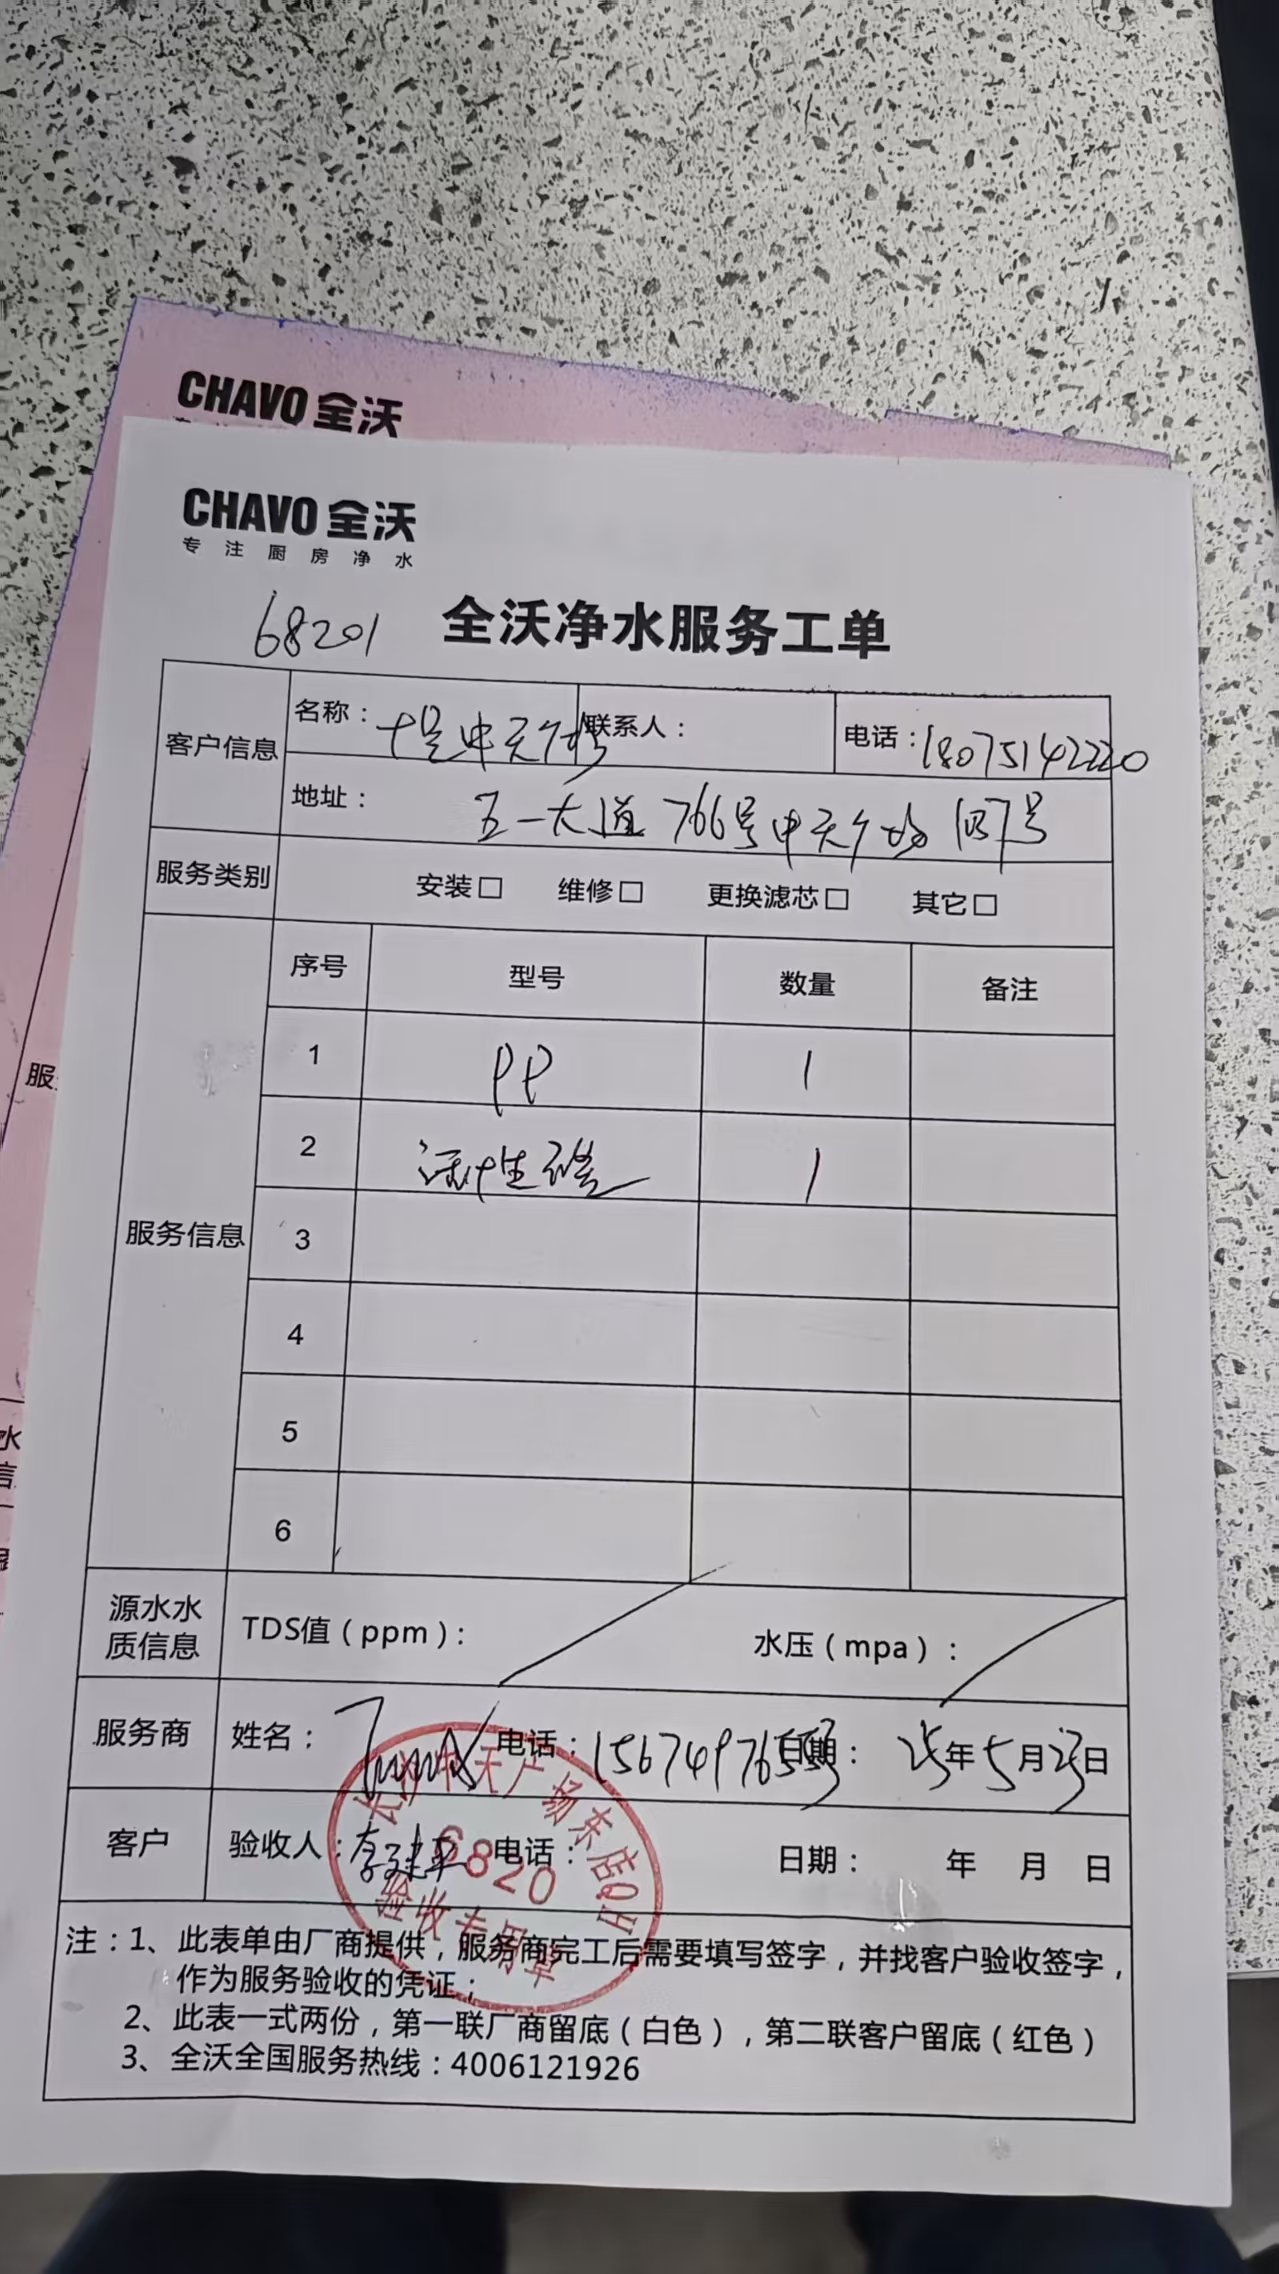 CHAVO 全沃
CHAVO 全沃
专注厨房净水
68201 全沃净水服务工单
客户信息 名称： 中天广场 联系人： 电话：18075142220
地址： 五一大道766号中天广场107号
服务类别 安装□ 维修□ 更换滤芯□ 其它□
服务信息 序号 型号 数量 备注
1 PP 1
2 活性碳 1
3
4
5
6
源水水质信息 TDS值（ppm）： 水压（mpa）：
服务商 姓名： 电话：156749765 日期： 25年5月23日
客户 验收人：李建平 电话： 日期： 年 月 日
长沙中天广场东店QH
6820
验收专用章
注：1、此表单由厂商提供，服务商完工后需要填写签字，并找客户验收签字，
作为服务验收的凭证；
2、此表一式两份，第一联厂商留底（白色），第二联客户留底（红色）
3、全沃全国服务热线：4006121926
服
水